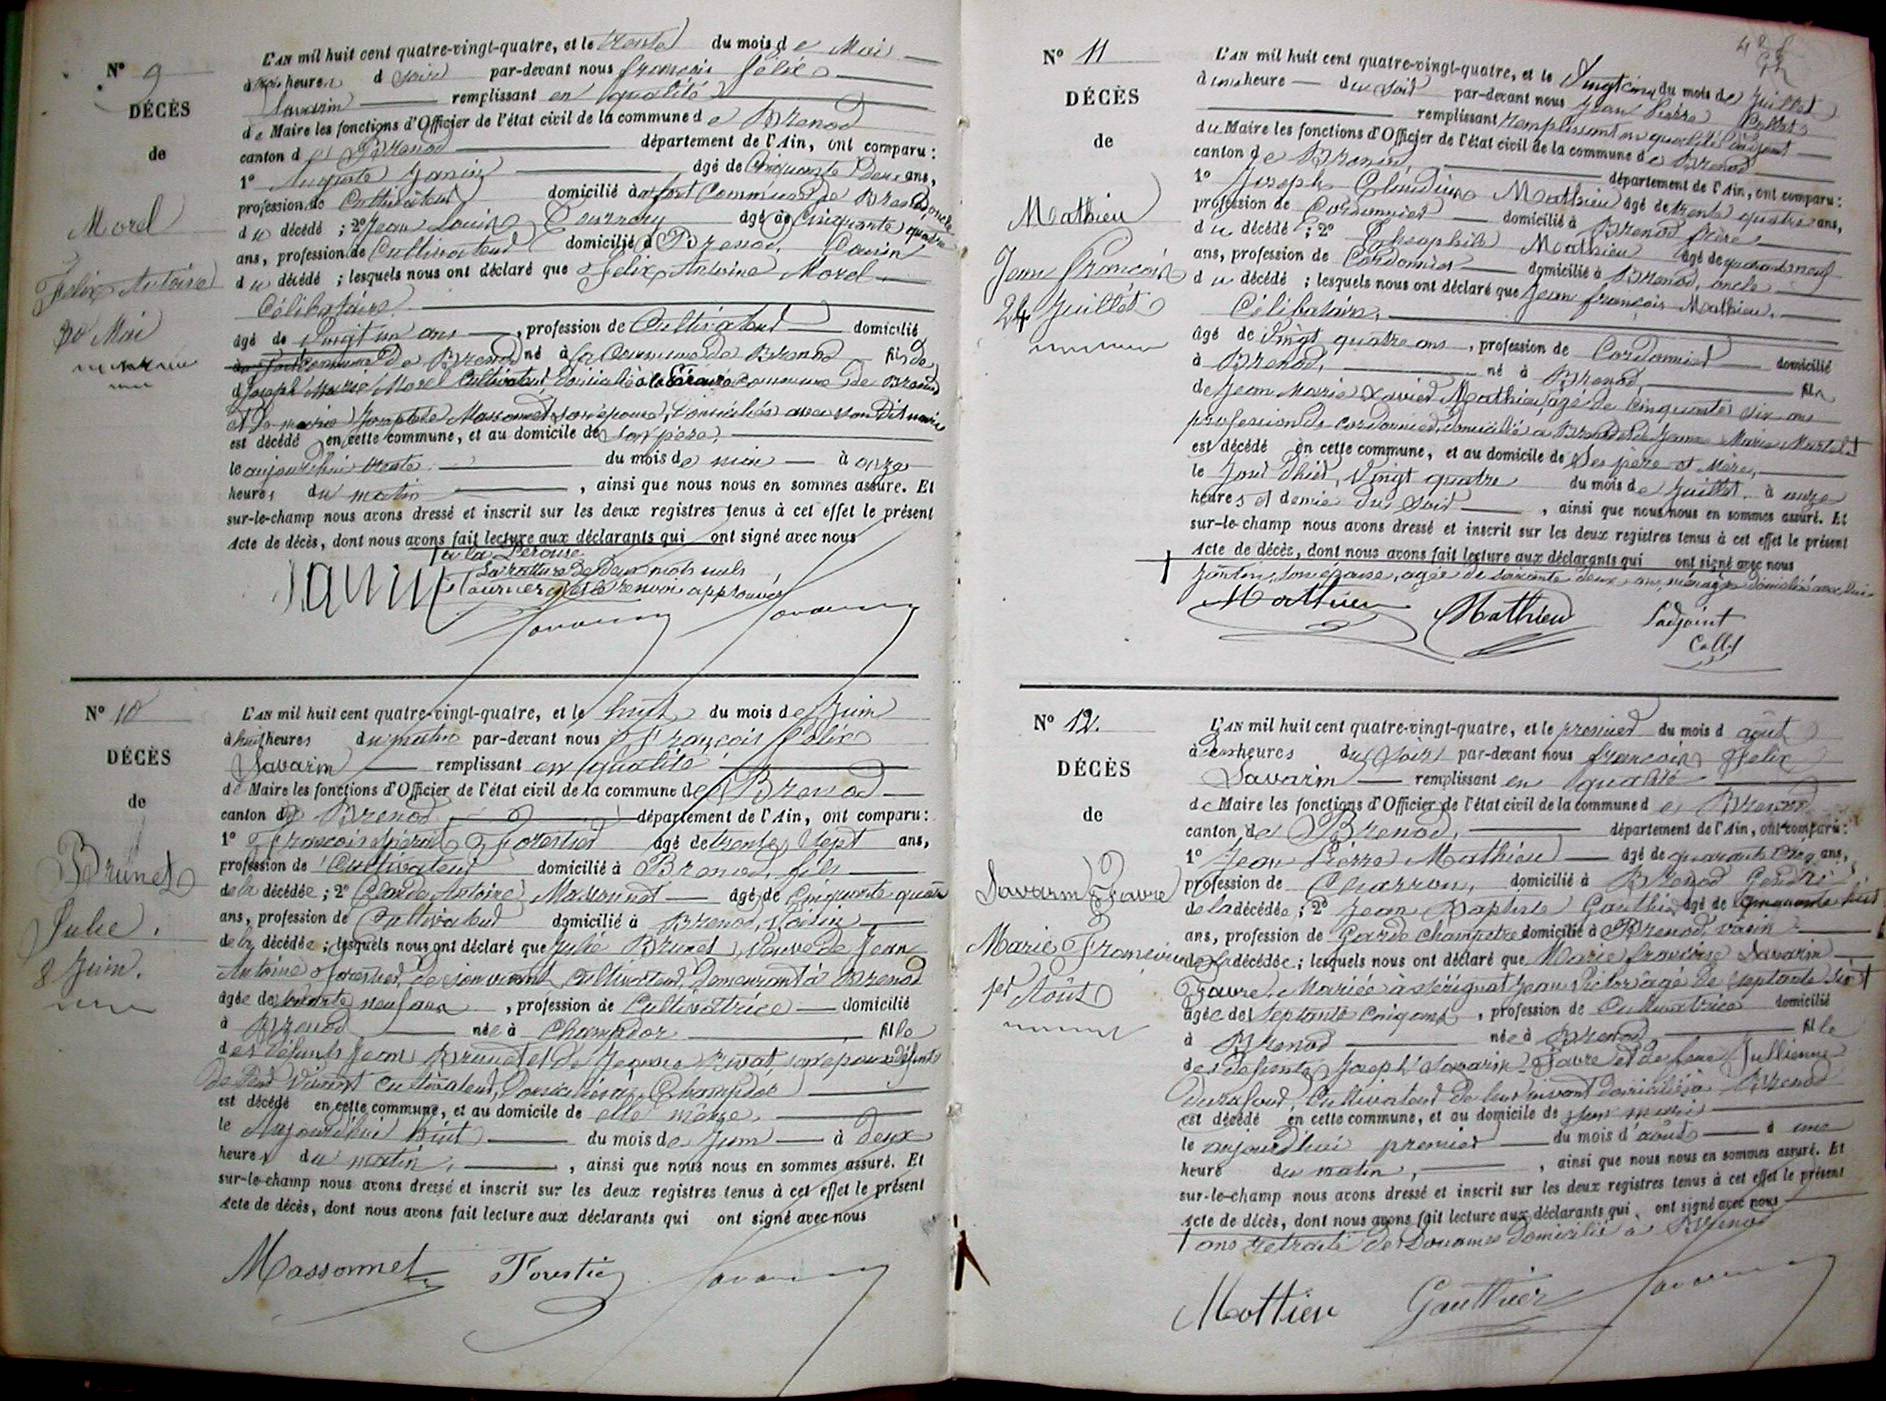 N° 9
DÉCÈS
de
Morel
Felix Antoine
30 Mai
L'AN mil huit cent quatre-vingt-quatre, et le trente du mois de Mai
heures d soir par-devant nous françois félix
Savarin remplissant en qualité
de Maire les fonctions d'Officier de l'état civil de la commune de Brenod
canton de Brenod département de l'Ain, ont comparu :
1° Auguste Janin âgé de Cinquante Deux ans,
profession de Cultivateur domicilié à commune de Brenod, oncle
du décédé ; 2° Jean Louis Tournery âgé de Cinquante quatre
ans, profession de Cultivateur domicilié à Brenod, Cousin
du décédé ; lesquels nous ont déclaré que Felix Antoine Morel
Célibataire
âgé de Vingt un ans , profession de Cultivateur domicilié
commune de Brenod né à la Commune de Brenod fils de
Joseph Marie Morel Cultivateur domicilié à la Pérouse commune de Brenod
et de marie Josephte Massonnet son épouse, domiciliée avec son dit marie
est décédé en cette commune, et au domicile de son père,
le aujourd'hui trente du mois de mai à onze
heures du matin , ainsi que nous nous en sommes assuré. Et
sur-le-champ nous avons dressé et inscrit sur les deux registres tenus à cet effet le présent
Acte de décès, dont nous avons fait lecture aux déclarants qui ont signé avec nous
à la Pérouse
La rature de deux mots nuls
et le renvoi approuvés
Janin Savarin Savarin
N° 10
DÉCÈS
de
Brunet
Julie.
8 Juin.
L'AN mil huit cent quatre-vingt-quatre, et le huit du mois de Juin
à huit heures du matin par-devant nous François Félix
Savarin remplissant en qualité
de Maire les fonctions d'Officier de l'état civil de la commune de Brenod
canton de Brenod département de l'Ain, ont comparu :
1° François Forestier âgé de trente sept ans,
profession de Cultivateur domicilié à Brenod, fils
de la décédée ; 2° Claude Antoine Massonnet âgé de Cinquante quatre
ans, profession de Cultivateur domicilié à Brenod, voisin
de la décédée ; lesquels nous ont déclaré que Julie Brunet, Veuve de Jean
Antoine Forestier, de son vivant cultivateur, demeurant à Brenod
âgée de neuf ans , profession de Cultivatrice domicilié
à Brenod née à Champdor fille
des défunts Jean Brunet et de Jeanne son épouse défunte
de leur vivant cultivateur, domiciliés à Champdor
est décédé en cette commune, et au domicile de elle même,
le Aujourd'hui huit du mois de Juin à deux
heures du matin, , ainsi que nous nous en sommes assuré. Et
sur-le-champ nous avons dressé et inscrit sur les deux registres tenus à cet effet le présent
Acte de décès, dont nous avons fait lecture aux déclarants qui ont signé avec nous
Massonnet Forestier Savarin
N° 11
DÉCÈS
de
Mathieu
Jean François
24 Juillet
L'AN mil huit cent quatre-vingt-quatre, et le Vingt cinq du mois de Juillet
à une heure du soir par-devant nous Jean Pierre
remplissant remplissant en qualité d'adjoint
du Maire les fonctions d'Officier de l'état civil de la commune de Brenod
canton de Brenod département de l'Ain, ont comparu :
1° Joseph Claudius Mathieu âgé de trente quatre ans,
profession de Cordonnier domicilié à Brenod frère
du décédé ; 2° Théophile Mathieu âgé de quarante neuf
ans, profession de Cordonnier domicilié à Brenod, oncle
du décédé ; lesquels nous ont déclaré que Jean françois Mathieu,
Célibataire,
âgé de Vingt quatre ans , profession de Cordonnier domicilié
à Brenod, né à Brenod, fils
de Jean Marie Xavier Mathieu, âgé de cinquante six ans
profession de cordonnier, domicilié à Brenod et de Jeanne Marie
est décédé en cette commune, et au domicile de Ses père et Mère,
le Jour d'hier, Vingt quatre du mois de Juillet à onze
heures et demie du soir , ainsi que nous nous en sommes assuré. Et
sur-le-champ nous avons dressé et inscrit sur les deux registres tenus à cet effet le présent
Acte de décès, dont nous avons fait lecture aux déclarants qui ont signé avec nous
son épouse, agée de soixante deux ans, ménagère domiciliée avec lui
Mathieu Mathieu L'adjoint
N° 12.
DÉCÈS
de
Savarin Favre
Marie Françoise
1er Août
L'AN mil huit cent quatre-vingt-quatre, et le premier du mois d août
heures du soir par-devant nous françois Felix
Savarin remplissant en qualité
de Maire les fonctions d'Officier de l'état civil de la commune de Brenod
canton de Brenod, département de l'Ain, ont comparu :
1° Jean Pierre Mathieu âgé de quarante cinq ans,
profession de Charron, domicilié à Brenod Gendre
de la décédée ; 2° Jean Baptiste Gauthier âgé de cinquante huit
ans, profession de Garde champetre domicilié à Brenod, voisin
de la décédée ; lesquels nous ont déclaré que Marie françoise Savarin
Favre, Mariée à Jean Victor agé de septante
âgée de septante cinq ans , profession de Cultivatrice domicilié
à Brenod née à Brenod fille
des défunts Joseph Savarin Favre et de feue Jullienne
Cultivateur de leur vivant domiciliés à Brenod
est décédé en cette commune, et au domicile de son mari
le aujourd'hui premier du mois d'août à une
heure du matin, , ainsi que nous nous en sommes assuré. Et
sur-le-champ nous avons dressé et inscrit sur les deux registres tenus à cet effet le présent
Acte de décès, dont nous avons fait lecture aux déclarants qui ont signé avec nous
ans retraité des Douanes domicilié à Brenod
Mottieu Gauthier Savarin